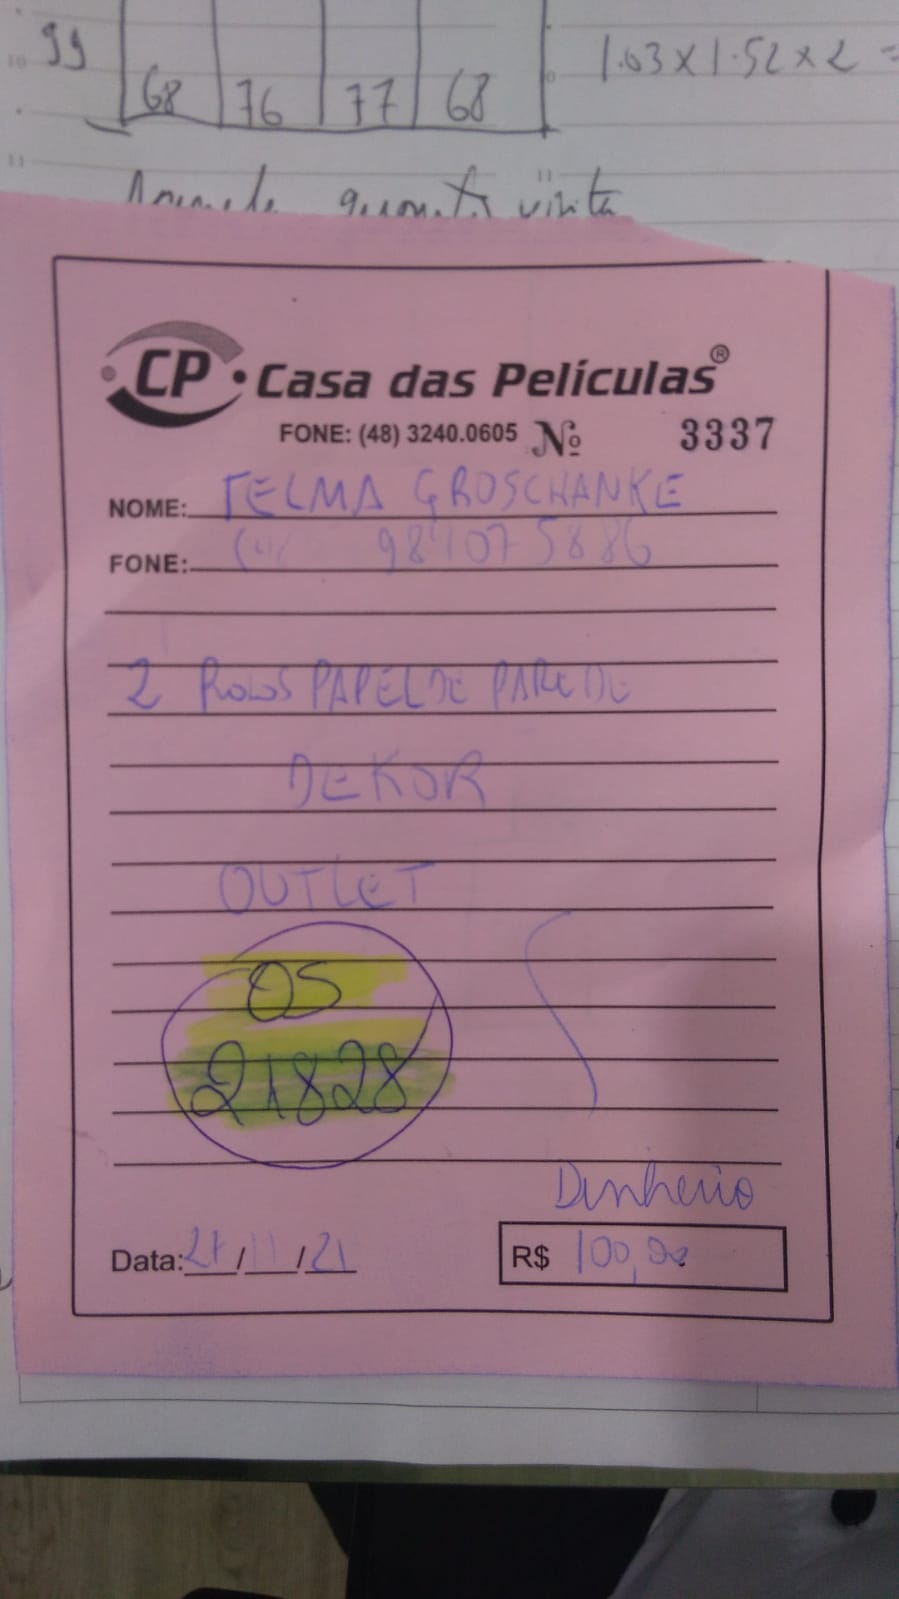 99
68 76 77 68
1.03 x 1.52 x 2 =
visita
CP
Casa das Películas®
FONE: (48) 3240.0605 Nº 3337
NOME: TELMA GROSCHANKE
FONE: 984075886
2 ROLOS PAPEL DE PAREDE
DEKOR
OUTLET
OS
21828
Dinheiro
Data: / 11 / 21
R$ 100,00